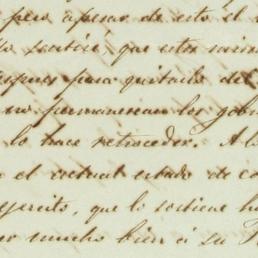 pero apesar de esto el
que estos mism
despues para quitarlo del
no permanescan los gob
lo hace retroceder. A l
el actual estado de co
ejercito, que lo sostiene h
mucho bien á su P